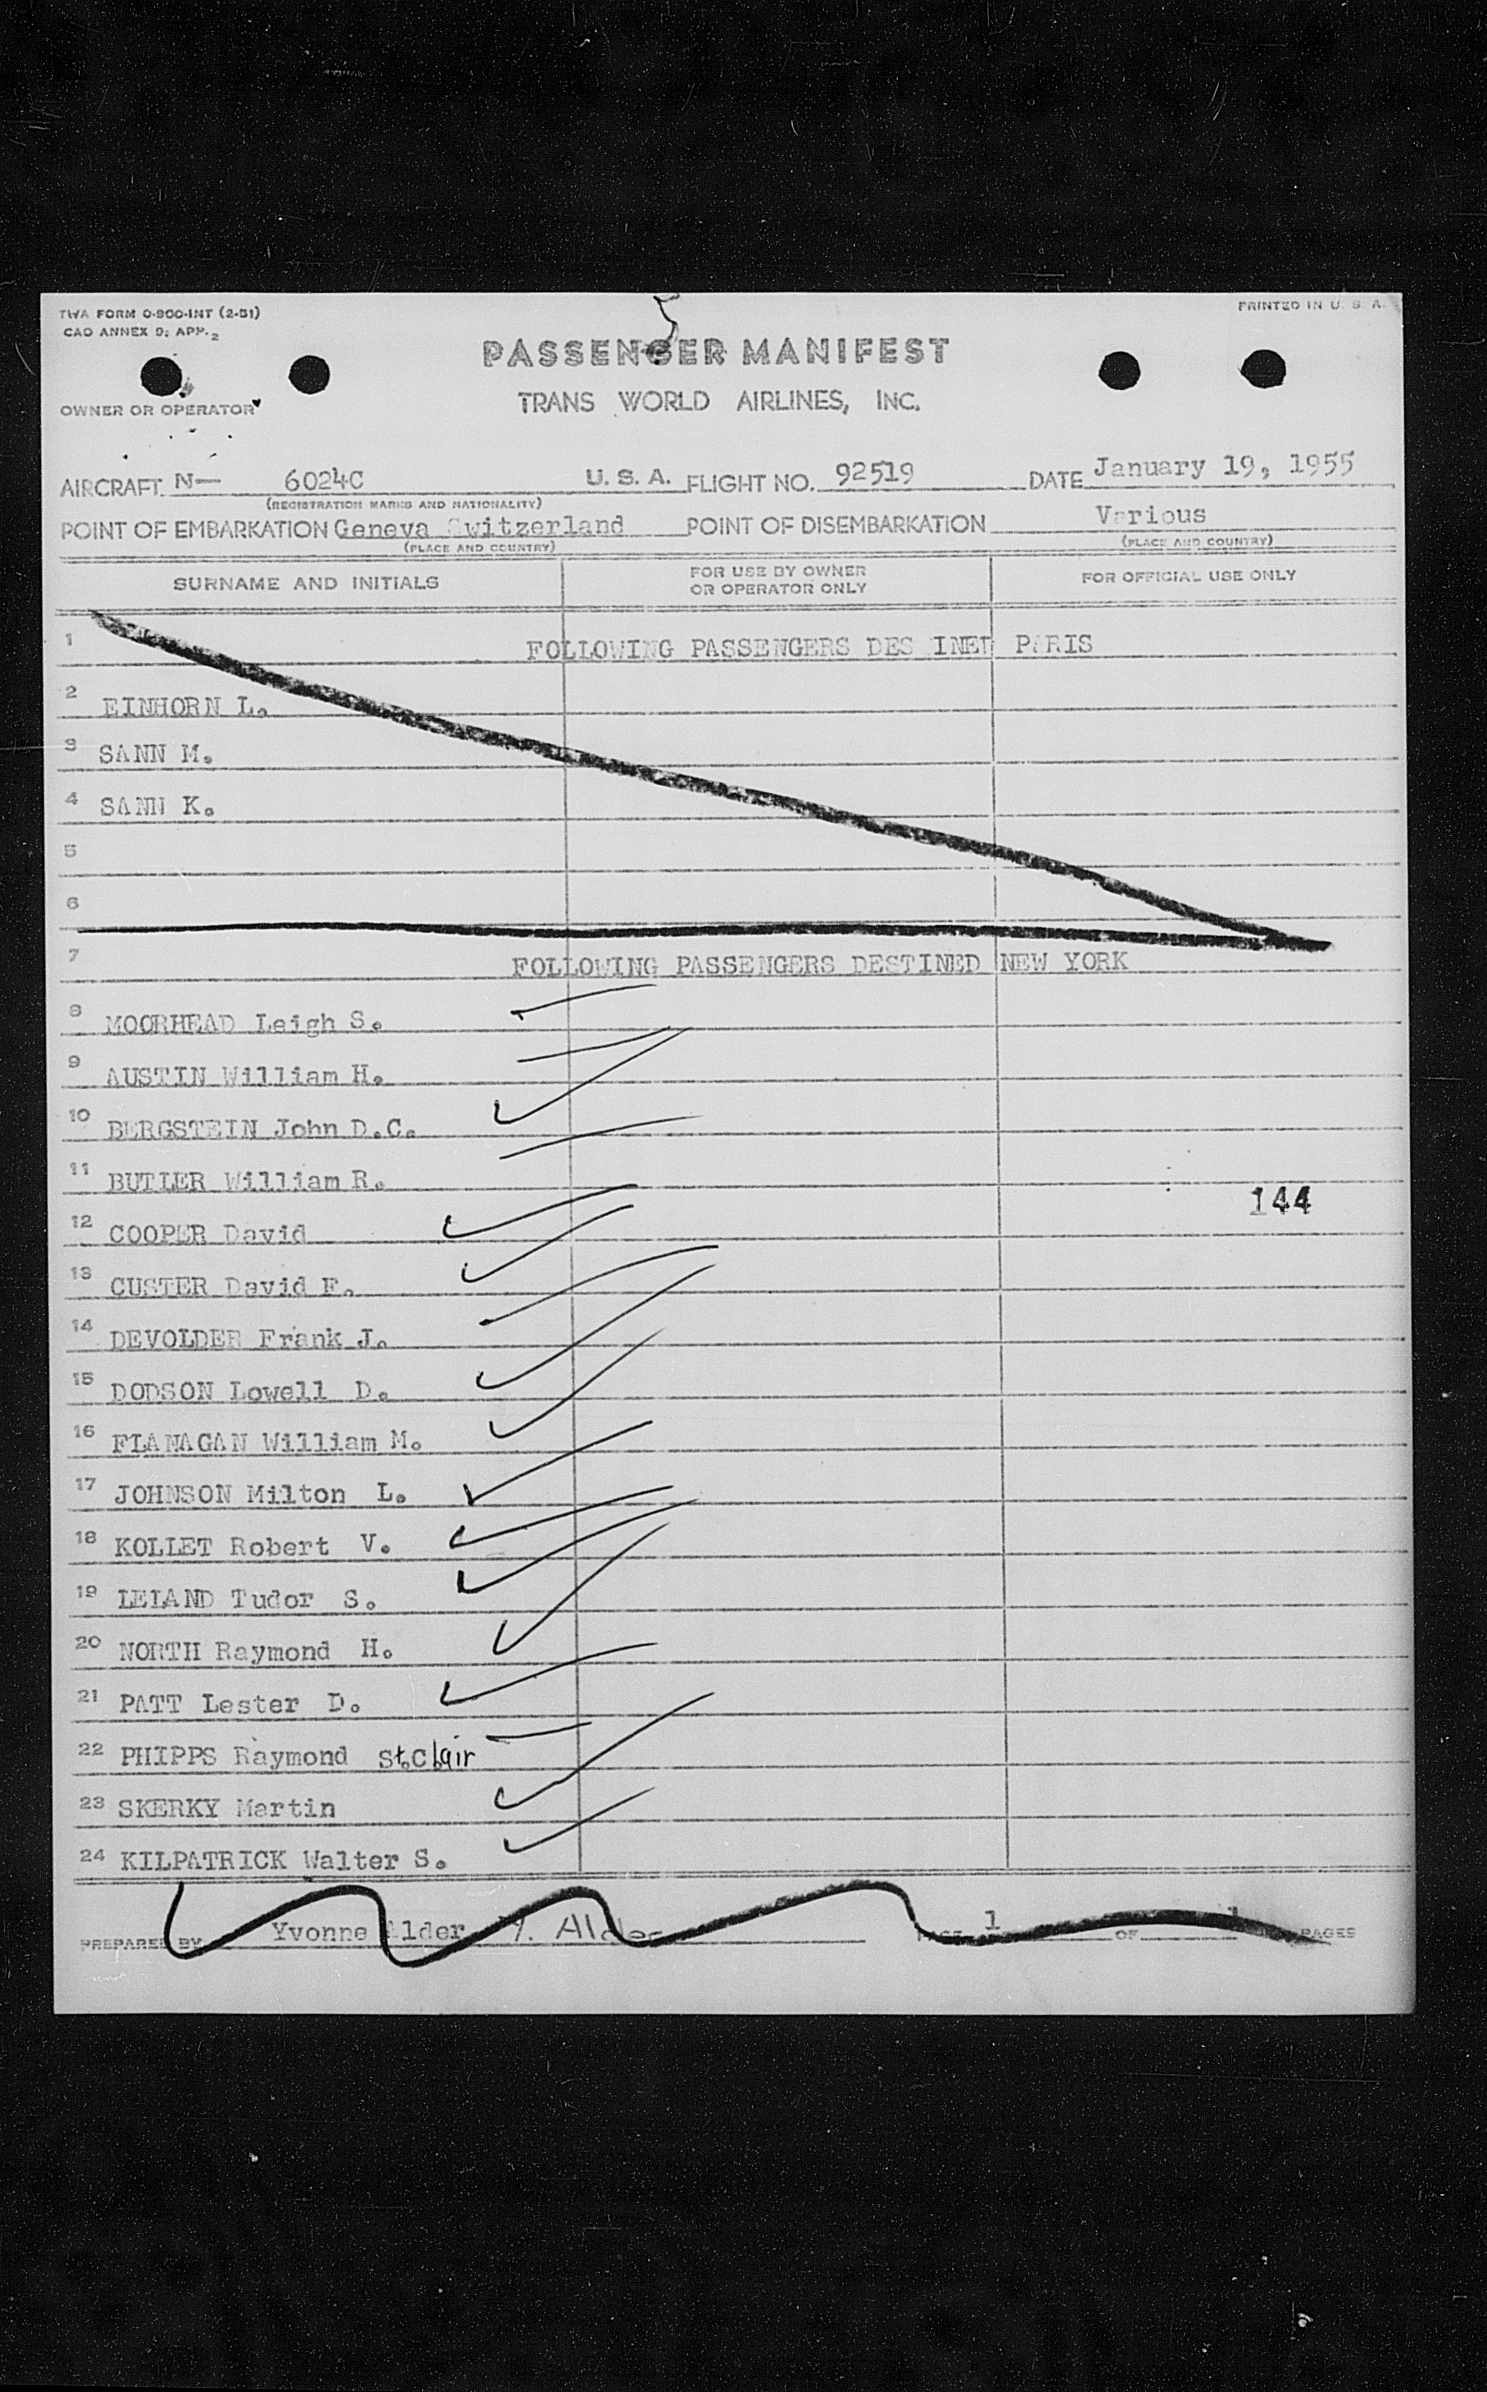 TWA FORM O-900-INT (2-51)
PRINTED IN U. S. A.
CAO ANNEX 9; APP. 2
5
PASSENGER MANIFEST
TRANS WORLD AIRLINES, INC.
OWNER OR OPERATOR
AIRCRAFT N— 6024C U. S. A. FLIGHT NO. 92519 DATE January 19, 1955
(REGISTRATION MARKS AND NATIONALITY)
POINT OF EMBARKATION Geneva Switzerland POINT OF DISEMBARKATION Various
(PLACE AND COUNTRY) (PLACE AND COUNTRY)
SURNAME AND INITIALS FOR USE BY OWNER OR OPERATOR ONLY FOR OFFICIAL USE ONLY
1 FOLLOWING PASSENGERS DES INED PARIS
2 EINHORN L.
3 SANN M.
4 SANN K.
5
6
7 FOLLOWING PASSENGERS DESTINED NEW YORK
8 MOORHEAD Leigh S.
9 AUSTIN William H.
10 BERGSTEIN John D.C.
11 BUTLER William R.
144
12 COOPER David
13 CUSTER David F.
14 DEVOLDER Frank J.
15 DODSON Lowell D.
16 FLANAGAN William M.
17 JOHNSON Milton L.
18 KOLLET Robert V.
19 LELAND Tudor S.
20 NORTH Raymond H.
21 PATT Lester D.
22 PHIPPS Raymond St.Clair
23 SKERKY Martin
24 KILPATRICK Walter S.
PREPARED BY Yvonne Alder Y. Alder PAGE 1 OF 1 PAGES